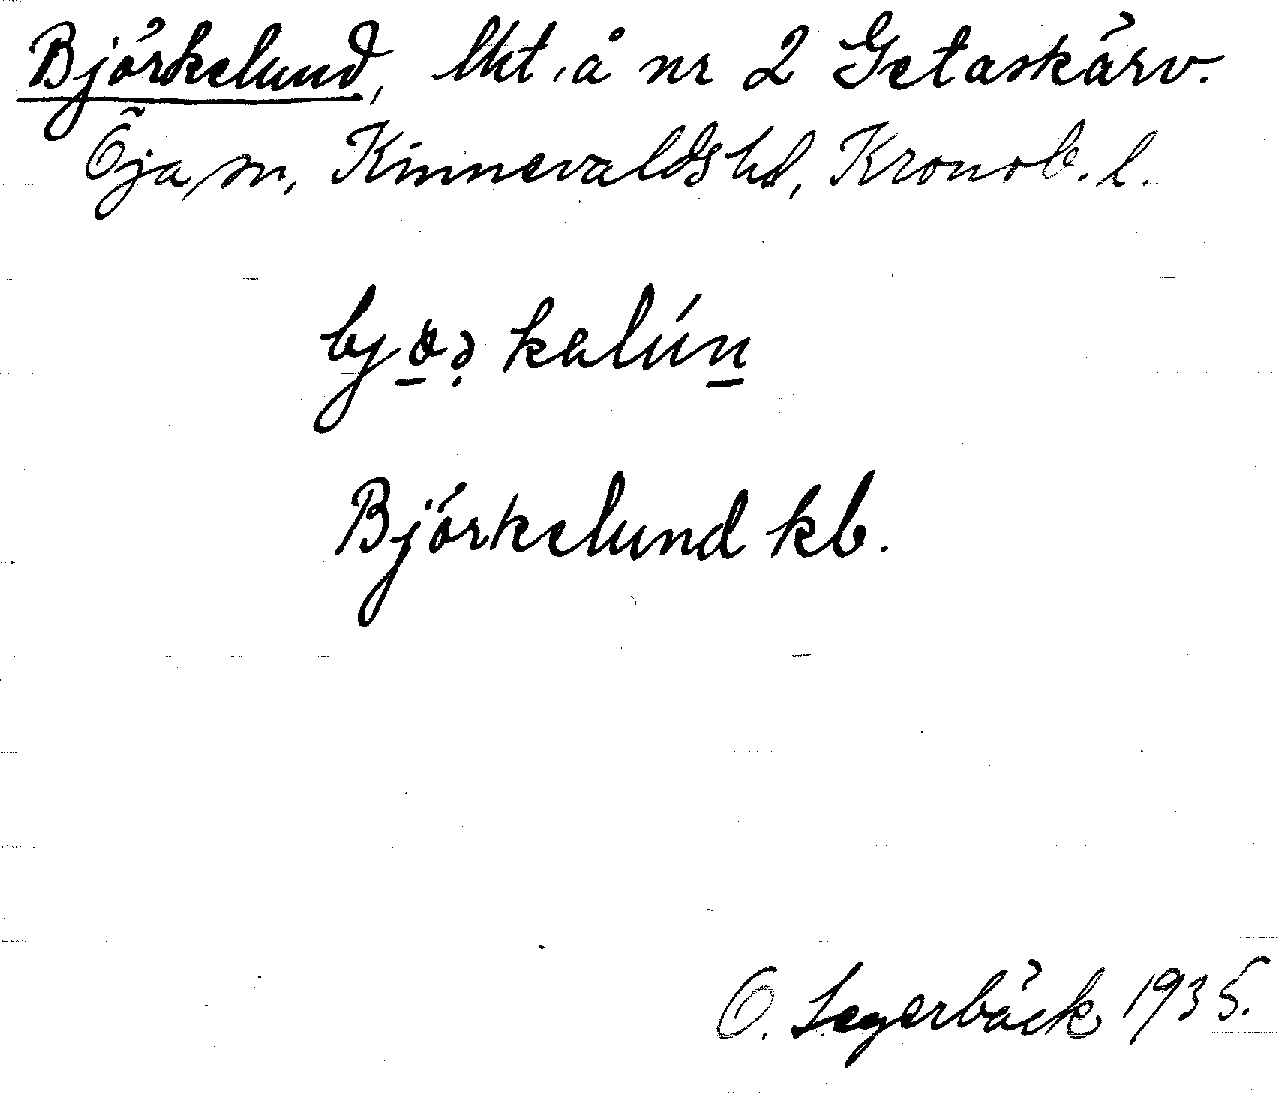 Björkelund, lht. å nr 2 Getaskärv.
Öja sn, Kinnevalds hd, Kronob. l.
kalún
Björkelund kb.
O. Segerbäck 1935.